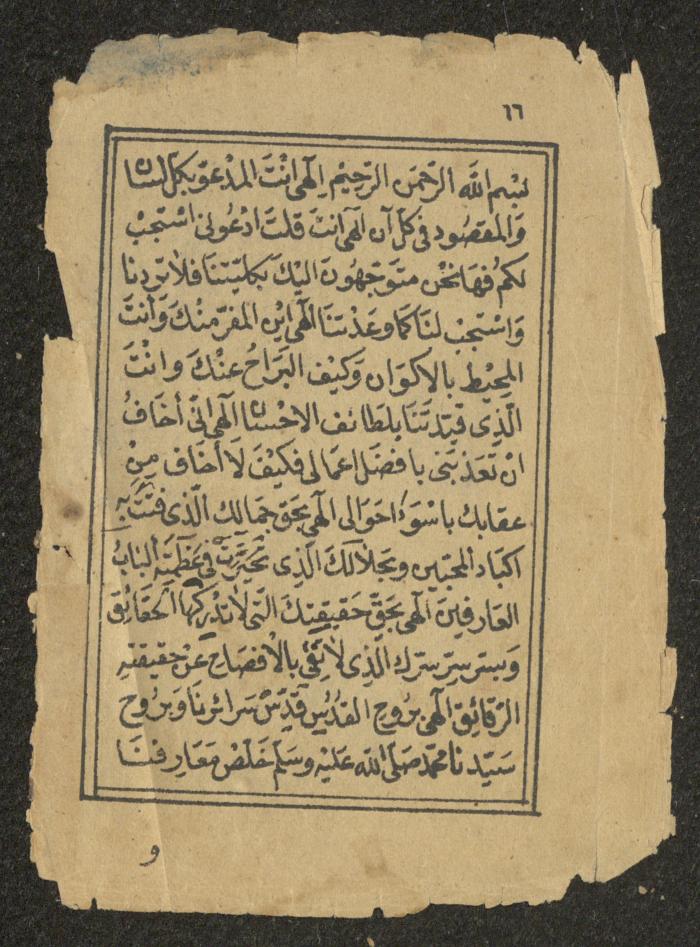 ١٦
بسْم الله الرّحمن الرّحيْم اِلٰهى اَنْتَ المدْعوّ بكلّ لسَان
وَالمَقصُود فى كلّ آن الٰهى انتَ قلتَ ادْعُونى اسْتجبْ
لكمْ فهَا نحْن متوَجّهُونَ اليْكَ بكليّتنَا فلا تردنا
وَاسْتجبْ لنَا كمَا وعَدْتنَا الٰهى ايْن المفرّ منْكَ وَأنتَ
المحيْط بالاكوَان وَكيْف البَرَاحُ عنْكَ وانْتَ
الّذى قيّدتَنَا بلطائف الاحْسان الٰهى انّى أخَافُ
انْ تعَذبَنى بافضَل اعمَالى فكيْفَ لَا أخَاف مِنْ
عقابك باسْوَء احوَالى الٰهى بحَقّ جمَالك الّذى فتّتَ به
اكبَاد المحبّين وبجلالكَ الّذِى تحَيّرَتْ فى عَظمَته ألبَابُ
العَارفينَ الٰهى بحَقّ حَقيقتِكَ الّتى لا تدْركهَا الحقَائِق
وَبسرّ سرّكِ الّذِى لا تَفى بالْافصَاح عَنْ حقيقته
الرّقائِق الٰهى برُوح القدُس قَدّسْ سَرائرنَا وَبرُوح
سَيّدنا محمّد صَلى الله عَليْه وسَلم خَلّصْ مَعَارفنَا
و